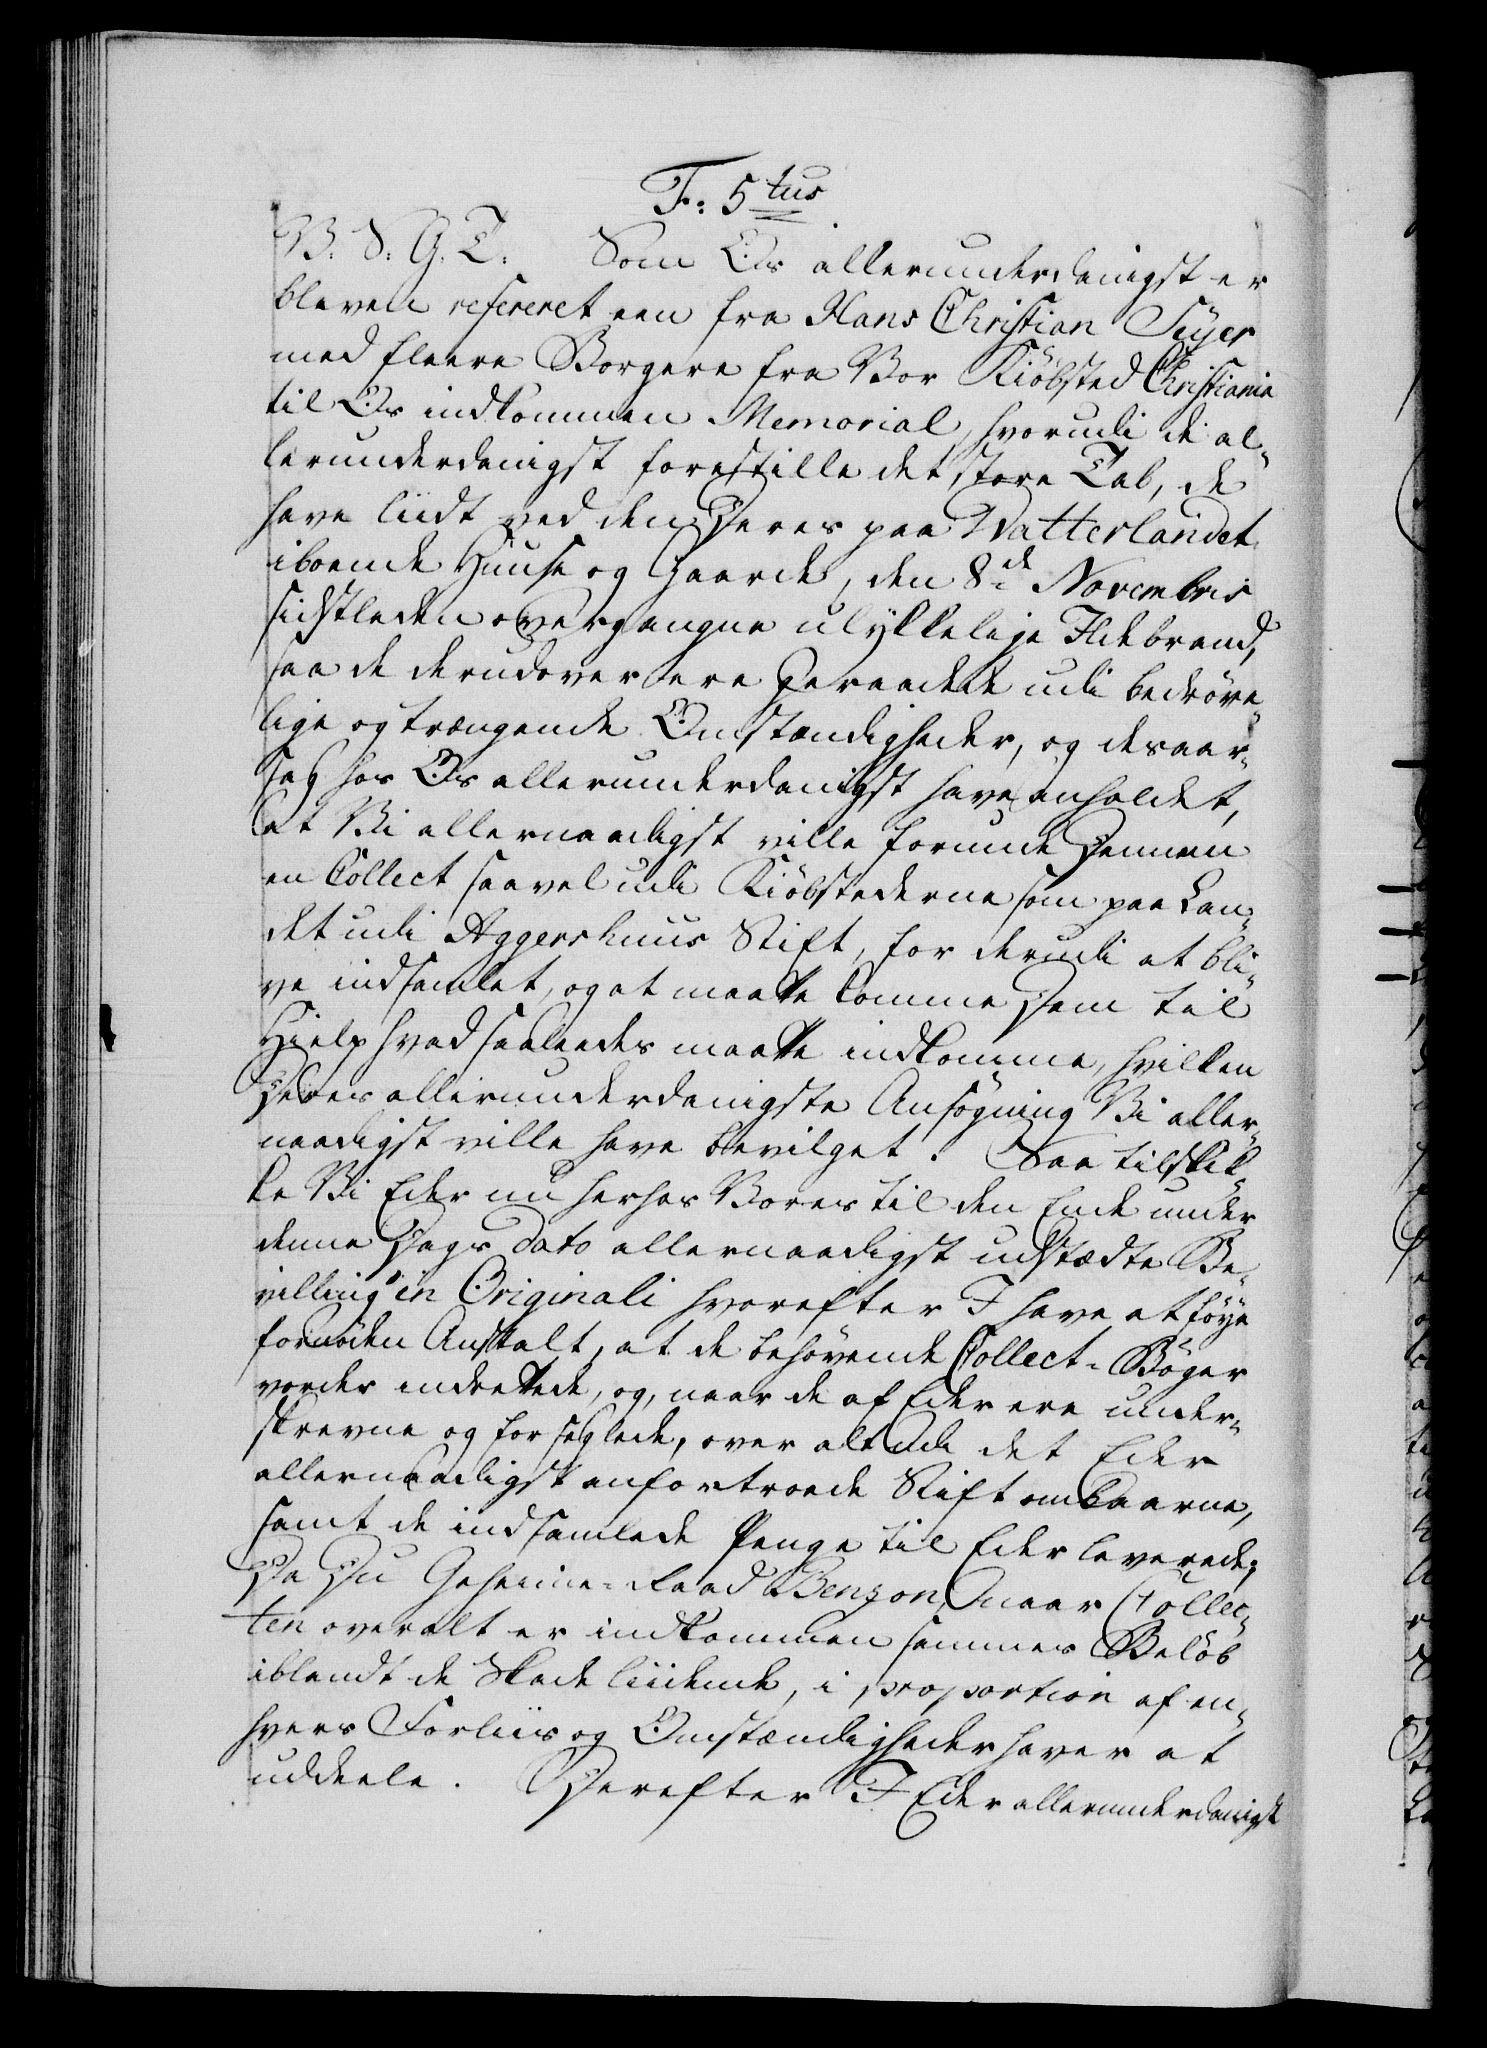 F: 5tus
V. S. G. T. Som Os allerunderdanigst er
bleven refereret een fra Hans Christian Seyer
med fleere Borgere fra Vor Kiöbsted Christiania
til Os indkommen Memorial, hvorudi de al-
lerunderdanigst forestille det store Tab, de
have liidt ved den Deres paa Watterlandet
iboende Huuse og Gaarde, den 8de Novembris
sidstleden overgangne ulykkelige Ildebrand,
saa de derudover ere geraadede udi bedröve-
lige og trængende Omstændigheder, og desaar-
sag hos Os allerunderdanigst have anholdet,
at Vi allernaadigst ville forunde Dennem
en Collect saavel udi Kiöbstederne som paa Lan-
det udi Aggershuus Stift, for derudi at bli-
ve indsamlet, og at maatte komme Dem til
Hielp hvad saaleedes maatte indkomme, hvilken
Deres allerunderdanigste Ansögning Vi aller-
naadigst ville have bevilget. Saa tilskik-
ke Vi Eder nu herhos Vores til den Ende under
denne Dags Dato allernaadigst udstædte Be-
villing in Originali hvorefter I have at föye
fornöden Anstalt, at de behövende Collect-Böger
vorder indrettede, og, naar de af Eder ere under-
skrevne og forseglede, over alt udi det Eder
allernaadigst anfortroede Stift ombaarne,
samt de indsamlede Penge til Eder leverede;
Da Du Geheime-Raad Benzon, naar Collec-
ten overalt er indkommen sammes Belöb
iblandt de Skade liidende, i proportion af en-
hvers Forliis og Omstændigheder haver at
uddeele. Derefter I Eder allerunderdanigst